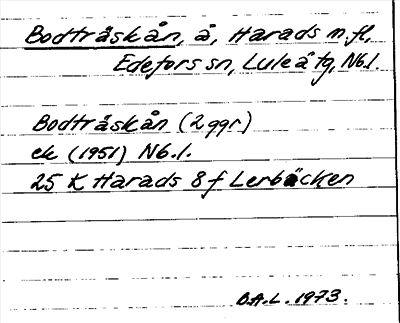 Bodträskån, å, Harads m.fl.,
Edefors sn, Luleå tg, Nb.l.
Bodträskån (2 ggr)
ek (1951) Nb.l.
25 K Harads 8 f Lerbäcken
B.A.L. 1973.